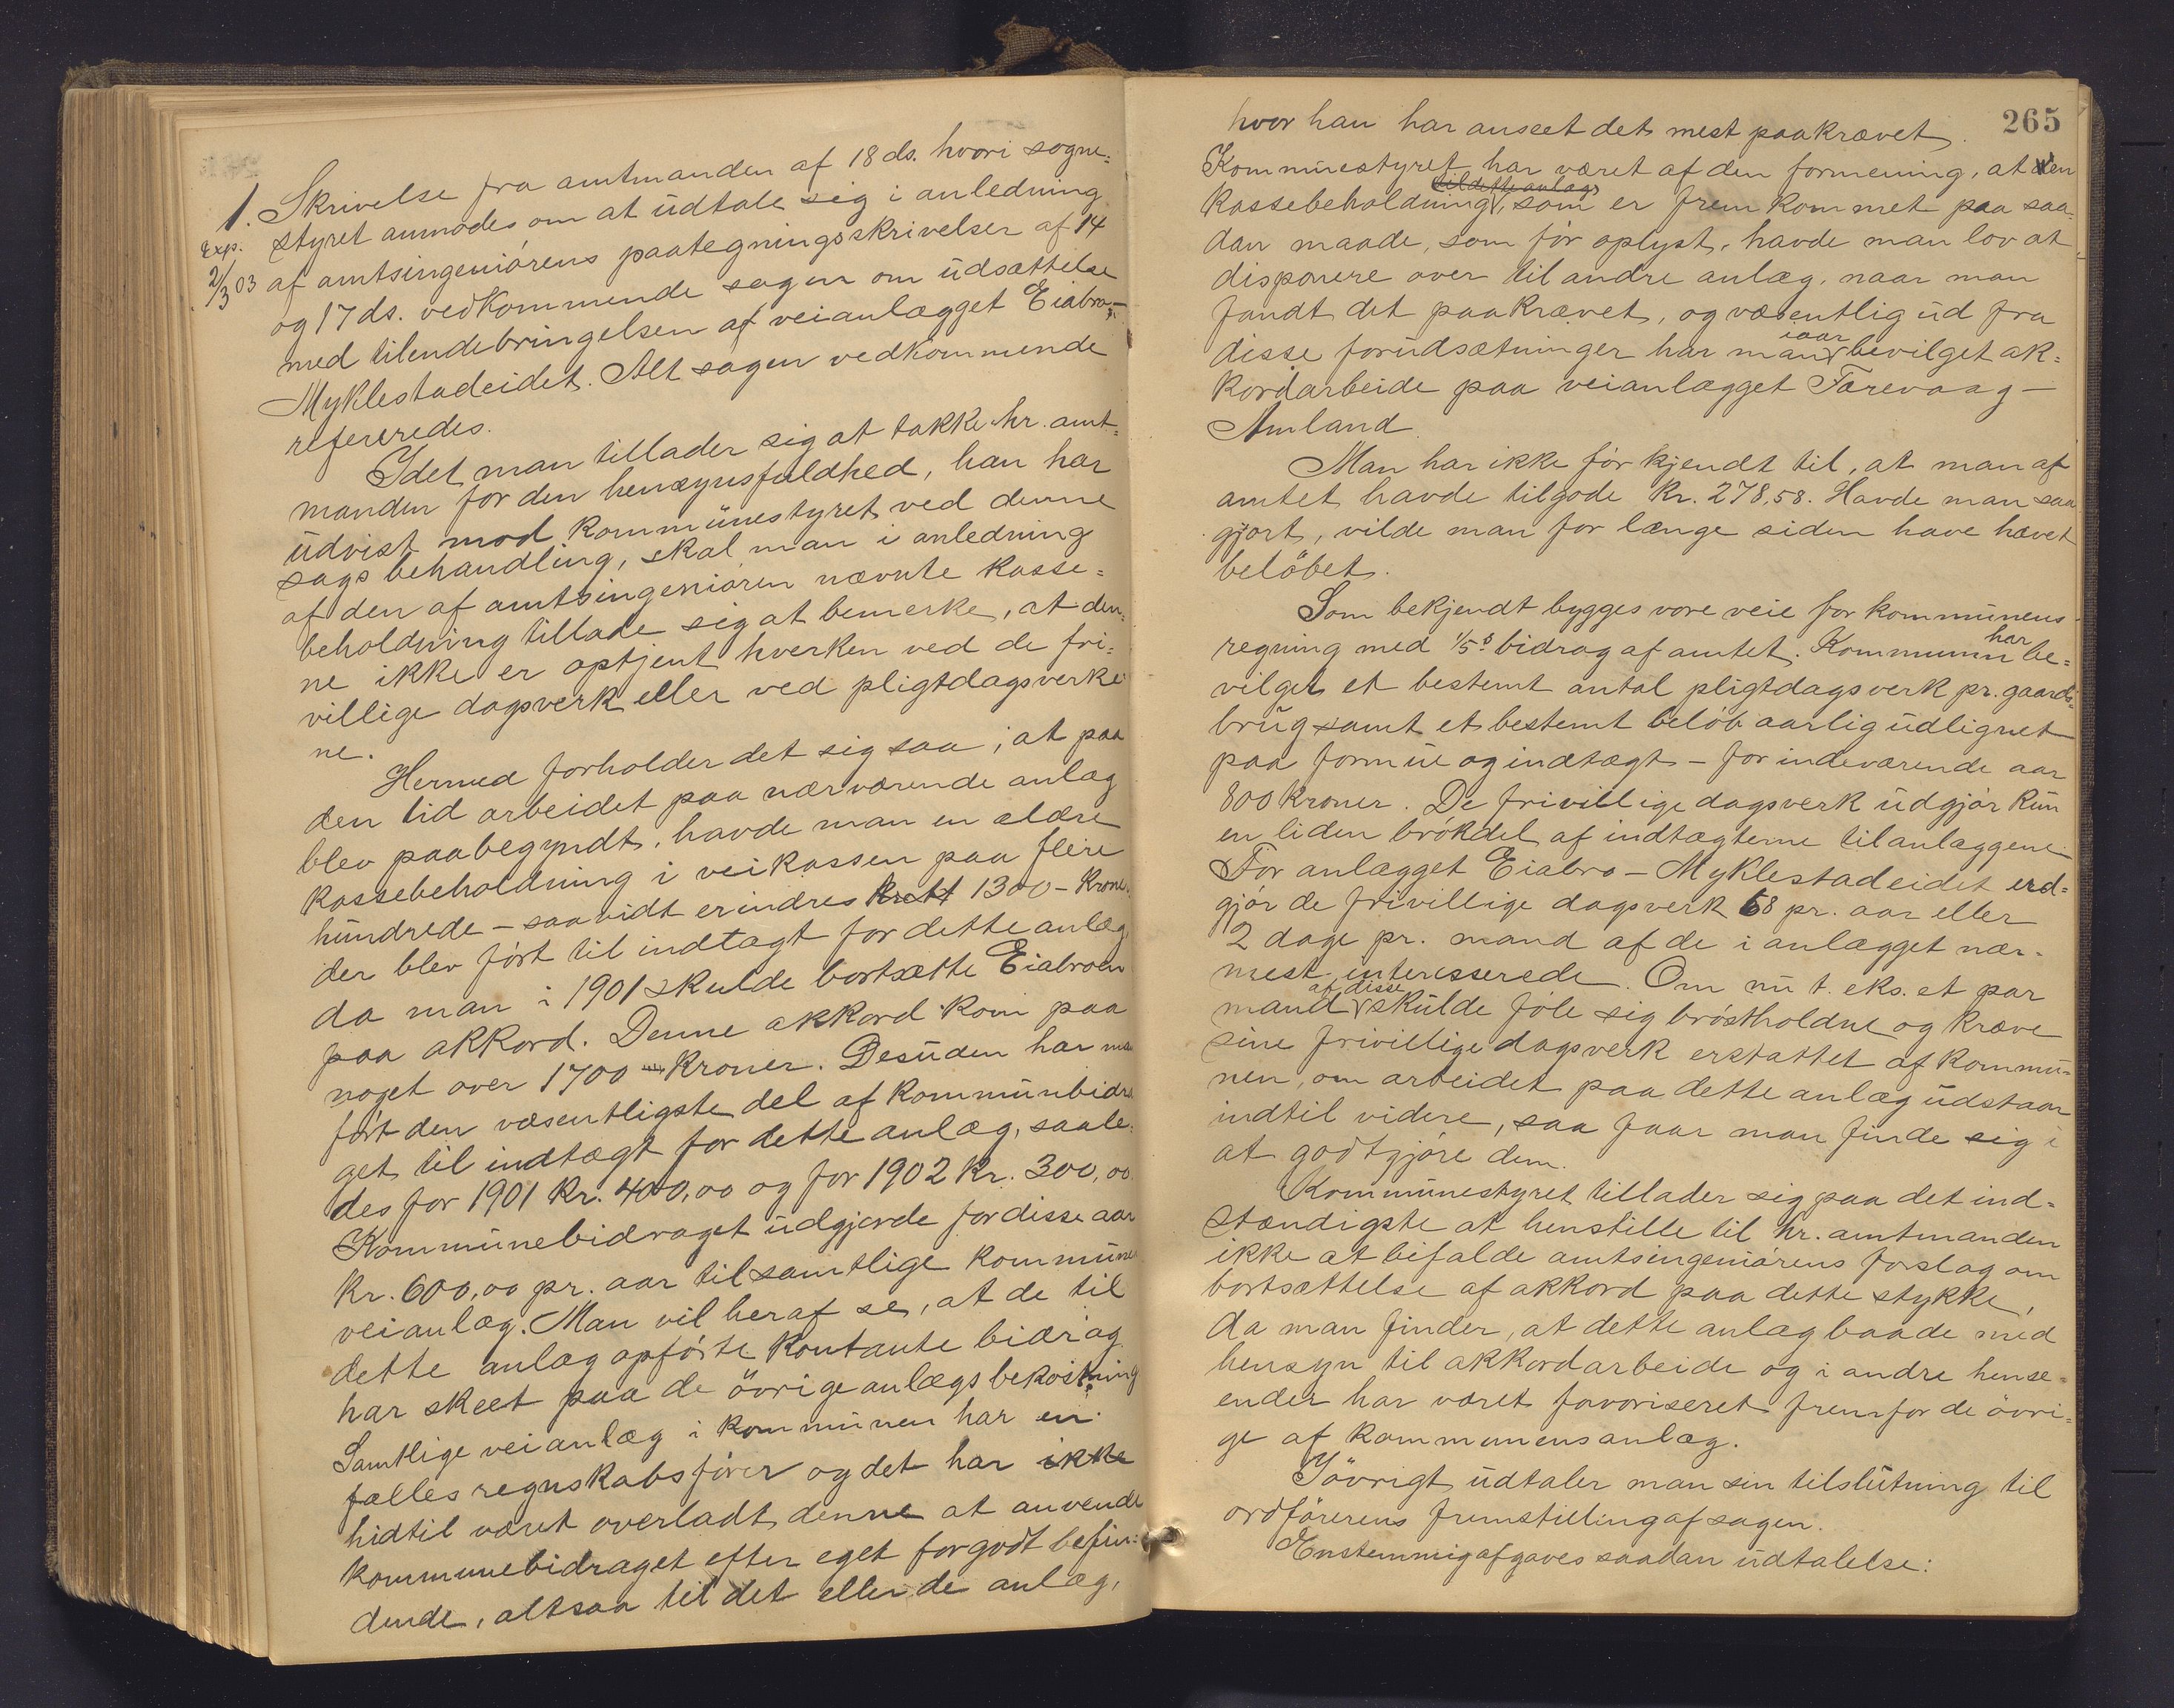 1. Skrivelse fra amtmanden af 18 ds. hvori sogne-
Exp. styret anmodes om at udtale sig i anledning
2/3 03 af amtsingeniørens paategningsskrivelser af 14
og 17 ds. vedkommende sagen om udsættelse
med tilendebringelsen af veianlægget Eiabro-
Myklestadeidet. Alt sagen vedkommende
refereredes.
Idet man tillader sig at takke hr. amt-
manden for den hensynsfuldhed, han har
udvist mod kommunestyret ved denne
sags behandling, skal man i anledning
af den af amtsingeniøren nævnte kasse-
beholdning tillade sig at bemerke, at den-
ne ikke er optjent hverken ved de fri-
villige dagsverk eller ved pligtdagsverke
ne.
Hermed forholder det sig saa, at paa
den tid arbeidet paa nærværende anlæg
blev paabegyndt, havde man en ældre
kassebeholdning i veikassen paa flere
hundrede – saavidt erindres 1300 – kroner
der blev ført til indtægt for dette anlæg
da man i 1901 skulde bortsætte Eiabroen
paa akkord. Denne akkord kom paa
noget over 1700 – kroner. Desuden har man
ført den væsentligste del af kommunebidra
get til indtægt for dette anlæg, saale-
des for 1901 kr. 400,00 og for 1902 kr. 300,00.
Kommunebidraget udgjorde for disse aar
kr. 600,00 pr. aar til samtlige kommune
veianlæg. Man vil heraf se, at de til
dette anlæg opførte kontante bidrag
har skeet paa de övrige anlægs bekostning.
Samtlige veianlæg i kommunen har en
fælles regnskabsfører og det har ikke
hidtil været overladt denne at anvende
kommunebidraget efter eget forgodt befin-
dende, altsaa til det eller de anlæg,
265
hvor han har anseet det mest paakrævet.
Kommunestyret har været af den formening, at den
til dette anlæg
kassebeholdning, som er fremkommet paa saa-
dan maade, som før oplyst, havde man lov at
disponere over til andre anlæg, naar man
fandt det paakrævet, og væsentlig ud fra
iaar
disse forudsætninger har man bevilget ak-
kordarbeide paa veianlægget Farevaag –
Amland.
Man har ikke før kjendt til, at man af
amtet havde tilgode kr. 278,58. Havde man saa
gjort, vilde man for længe siden have hævet
beløbet.
Som bekjendt bygges vore veie for kommunens
har
regning med 1/5s bidrag af amtet. Kommunen be-
vilget et bestemt antal pligtdagsverk pr. gaards-
brug samt et bestemt beløb aarlig udlignet
paa formue og indtægt – for indeværende aar
800 kroner. De frivillige dagsverk udgjør kun
en liden brøkdel af indtægterne til anlæggene.
For anlægget Eiabro – Myklestadeidet ud-
gjør de frivillige dagsverk 68 pr. aar eller
2 dage pr. mand af de i anlægget nær-
mest interesserede. Om nu t. eks. et par
af disse
mand skulde føle sig brøstholdne og kræve
sine frivillige dagsverk erstattet af kommu-
nen, om arbeidet paa dette anlæg udstaar
indtil videre, saa faar man finde sig i
at godtgjøre dem.
Kommunestyret tillader sig paa det ind-
stændigste at henstille til hr. amtmanden
ikke at bifalde amtsingeniørens forslag om
bortsættelse af akkord paa dette stykke,
da man finder, at dette anlæg baade med
hensyn til akkordarbeide og i andre hense-
ender har været favoriseret fremfor de övri-
ge af kommunens anlæg.
Iövrigt udtaler man sin tilslutning til
ordførerens fremstilling af sagen.
Enstemmig afgaves saadan udtalelse: